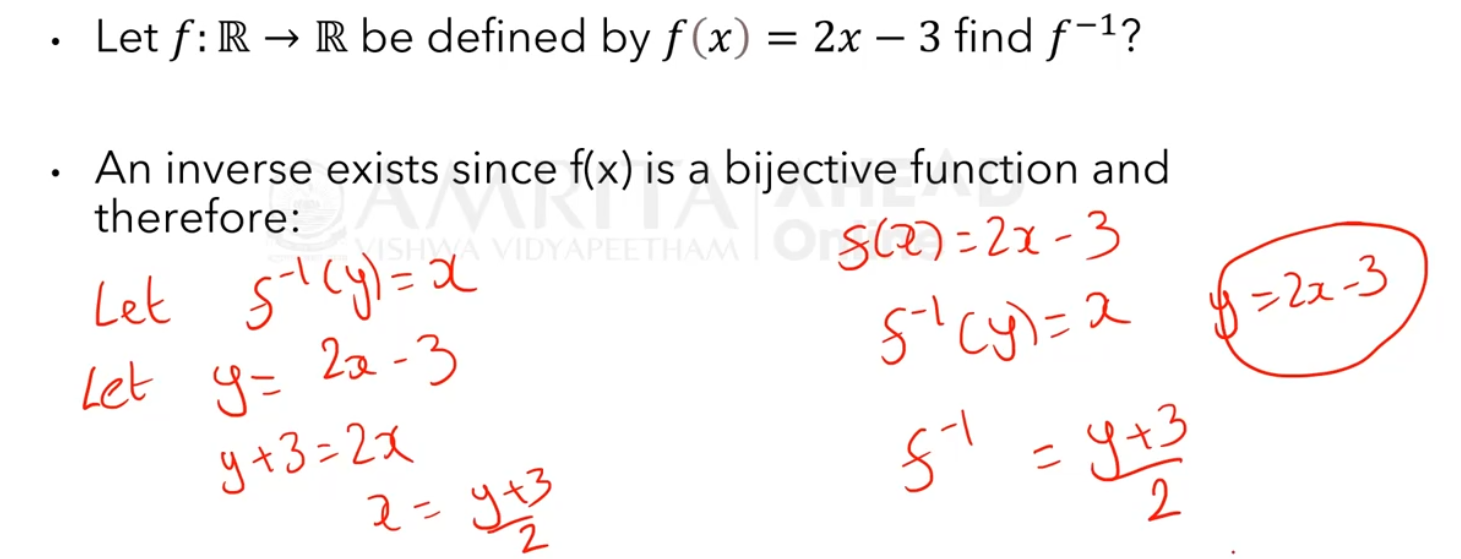 • Let f: ℝ → ℝ be defined by f(x) = 2x − 3 find f⁻¹?
• An inverse exists since f(x) is a bijective function and
therefore:
AMRITA AHEAD
VISHWA VIDYAPEETHAM Online
Let f⁻¹(y) = x
Let y = 2x - 3
y + 3 = 2x
x = y+3/2
f(x) = 2x - 3
f⁻¹(y) = x
y = 2x - 3
f⁻¹ = y+3/2